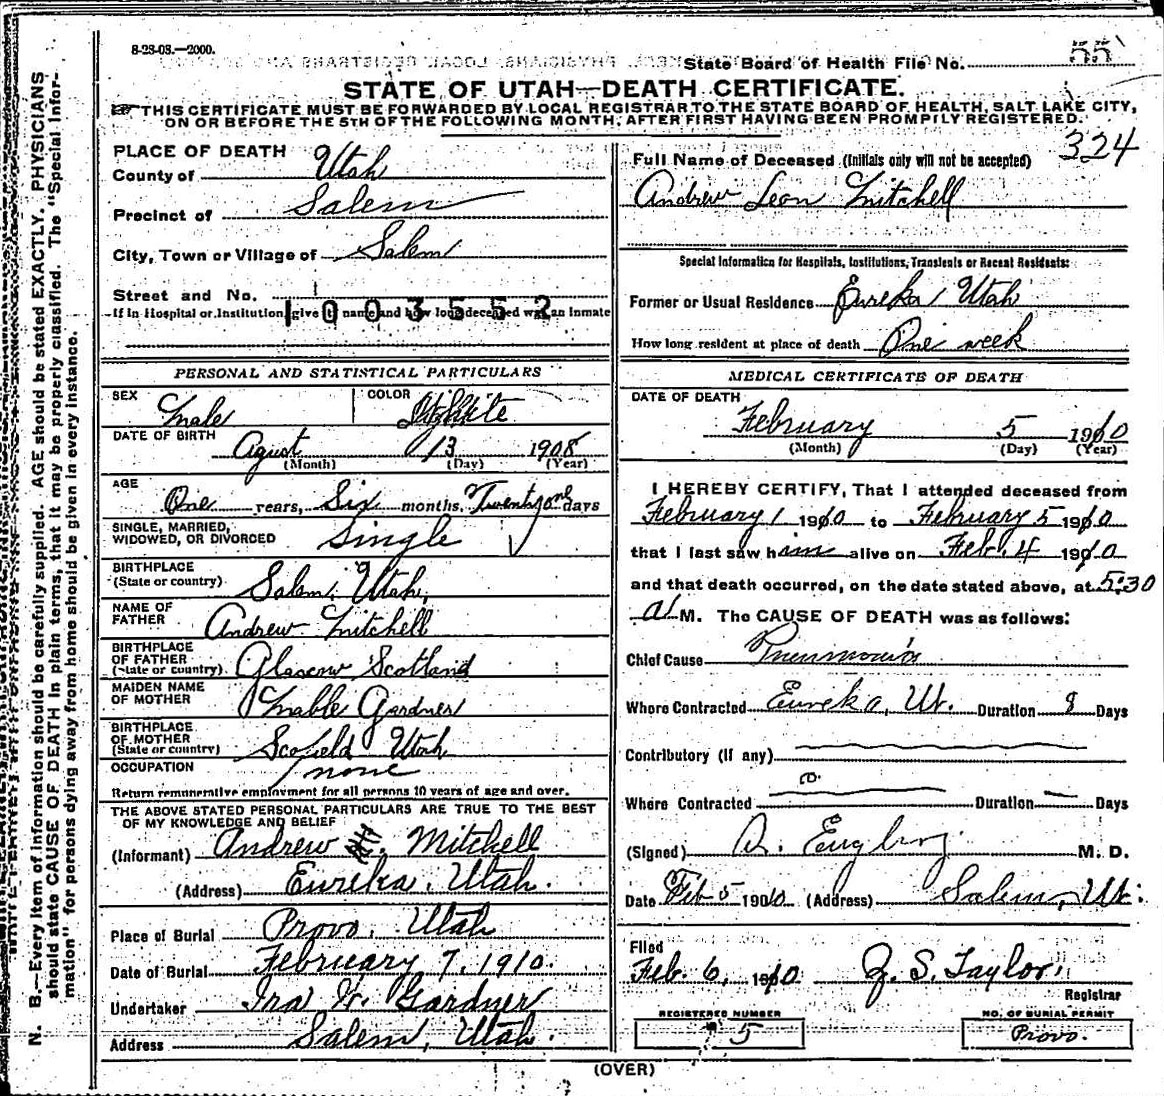 8-23-08.—2000.
State Board of Health File No. 55
STATE OF UTAH—DEATH CERTIFICATE.
THIS CERTIFICATE MUST BE FORWARDED BY LOCAL REGISTRAR TO THE STATE BOARD OF HEALTH, SALT LAKE CITY,
ON OR BEFORE THE 5TH OF THE FOLLOWING MONTH, AFTER FIRST HAVING BEEN PROMPTLY REGISTERED.
324
PLACE OF DEATH
County of Utah
Precinct of Salem
City, Town or Village of Salem
Street and No.
1003552
If in Hospital or Institution, give its name and how long deceased was an Inmate
PERSONAL AND STATISTICAL PARTICULARS
SEX Male COLOR White
DATE OF BIRTH Agust 13 1908
(Month) (Day) (Year)
AGE
One years, Six months, Twenty one days
SINGLE, MARRIED,
WIDOWED, OR DIVORCED Single
BIRTHPLACE
(State or country) Salem, Utah,
NAME OF
FATHER Andrew Mitchell
BIRTHPLACE
OF FATHER
(State or country) Glascow Scotland
MAIDEN NAME
OF MOTHER Mable Gardner
BIRTHPLACE
OF MOTHER
(State or country) Scofield Utah
OCCUPATION none
Return remunerative employment for all persons 10 years of age and over.
THE ABOVE STATED PERSONAL PARTICULARS ARE TRUE TO THE BEST
OF MY KNOWLEDGE AND BELIEF
(Informant) Andrew Mitchell
(Address) Eureka, Utah.
Place of Burial Provo, Utah
Date of Burial February 7, 1910.
Undertaker Ira W. Gardner
Address Salem, Utah.
Full Name of Deceased (Initials only will not be accepted)
Andrew Leon Mitchell
Special Information for Hospitals, Institutions, Transients or Recent Residents:
Former or Usual Residence Eureka, Utah
How long resident at place of death One week
MEDICAL CERTIFICATE OF DEATH
DATE OF DEATH
February 5 1910
(Month) (Day) (Year)
I HEREBY CERTIFY, That I attended deceased from
February 1 1910 to February 5 1910
that I last saw him alive on Feb. 4 1910
and that death occurred, on the date stated above, at 5:30
a M. The CAUSE OF DEATH was as follows:
Chief Cause Pneumonia
Where Contracted Eureka, Ut. Duration 8 Days
Contributory (if any)
Where Contracted Duration — Days
(Signed) M. D.
Date Feb 5 1910 (Address) Salem, Ut.
Filed
Feb. 6, 1910 Z. S. Taylor.
Registrar
REGISTERED NUMBER
5
NO. OF BURIAL PERMIT
Provo.
(OVER)
N. B.—Every item of information should be carefully supplied. AGE should be stated EXACTLY. PHYSICIANS
should state CAUSE OF DEATH in plain terms, that it may be properly classified. The "Special Infor-
mation" for persons dying away from home should be given in every instance.